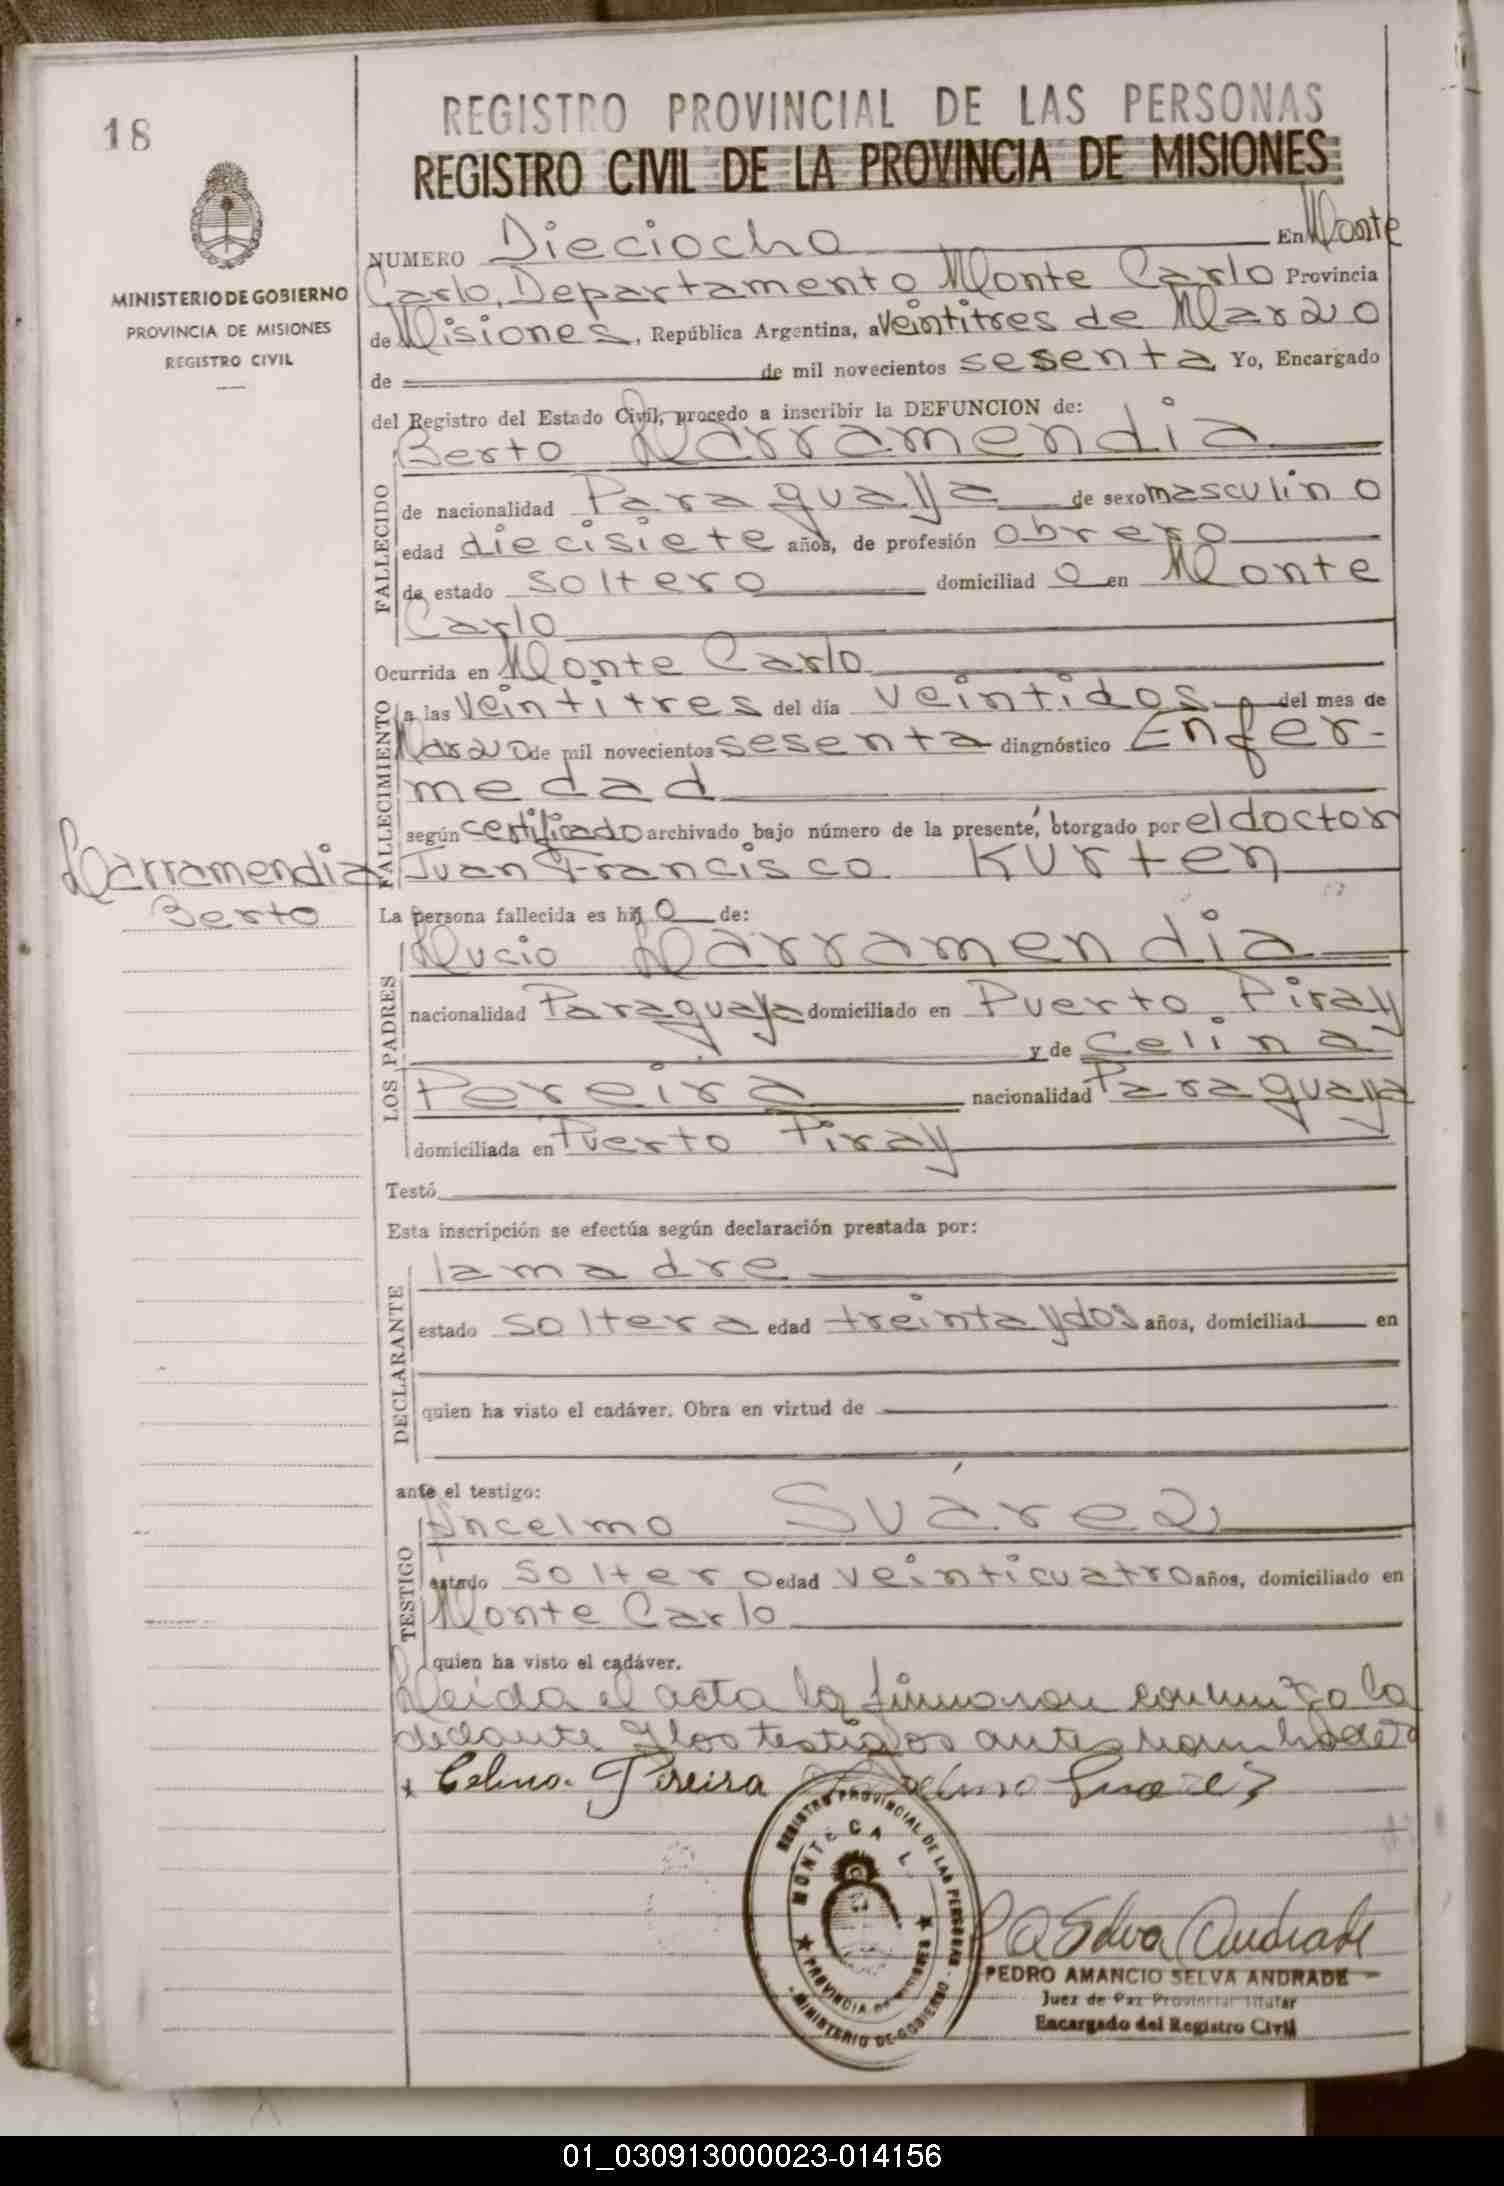 18
REGISTRO PROVINCIAL DE LAS PERSONAS
REGISTRO CIVIL DE LA PROVINCIA DE MISIONES
MINISTERIO DE GOBIERNO
PROVINCIA DE MISIONES
REGISTRO CIVIL
NUMERO Dieciocho En Monte
Carlo, Departamento Monte Carlo Provincia
de Misiones, República Argentina, a veintitres de Marzo
de de mil novecientos sesenta Yo, Encargado
del Registro del Estado Civil, procedo a inscribir la DEFUNCION de:
Berto Larramendia
FALLECIDO
de nacionalidad Paraguaya de sexo masculino
edad diecisiete años, de profesión obrero
de estado soltero domiciliad o en Monte
Carlo
Ocurrida en Monte Carlo
FALLECIMIENTO
a las veintitres del día veintidos del mes de
Marzo de mil novecientos sesenta diagnóstico Enfer-
medad
según certificado archivado bajo número de la presente, otorgado por el doctor
Juan Francisco Kurten
Larramendia
Berto
La persona fallecida es hij o de:
Lucio Larramendia
LOS PADRES
nacionalidad Paraguaya domiciliado en Puerto Piray
y de Celina
Pereira nacionalidad Paraguaya
domiciliada en Puerto Piray
Testó
Esta inscripción se efectúa según declaración prestada por:
la madre
DECLARANTE
estado soltera edad treinta y dos años, domiciliad en
quien ha visto el cadáver. Obra en virtud de
ante el testigo:
Ancelmo Suárez
TESTIGO
estado soltero edad veinticuatro años, domiciliado en
Monte Carlo
quien ha visto el cadáver.
Leida el acta la firmaron conmigo la
y los testigos
Celina Pereira Ancelmo Suarez
REGISTRO PROVINCIAL DE LAS PERSONAS
MONTE CA L
PROVINCIA DE MISIONES
MINISTERIO DE GOBIERNO
P A Selva Andrade
PEDRO AMANCIO SELVA ANDRADE
Juez de Paz Provincial Titular
Encargado del Registro Civil
01_030913000023-014156